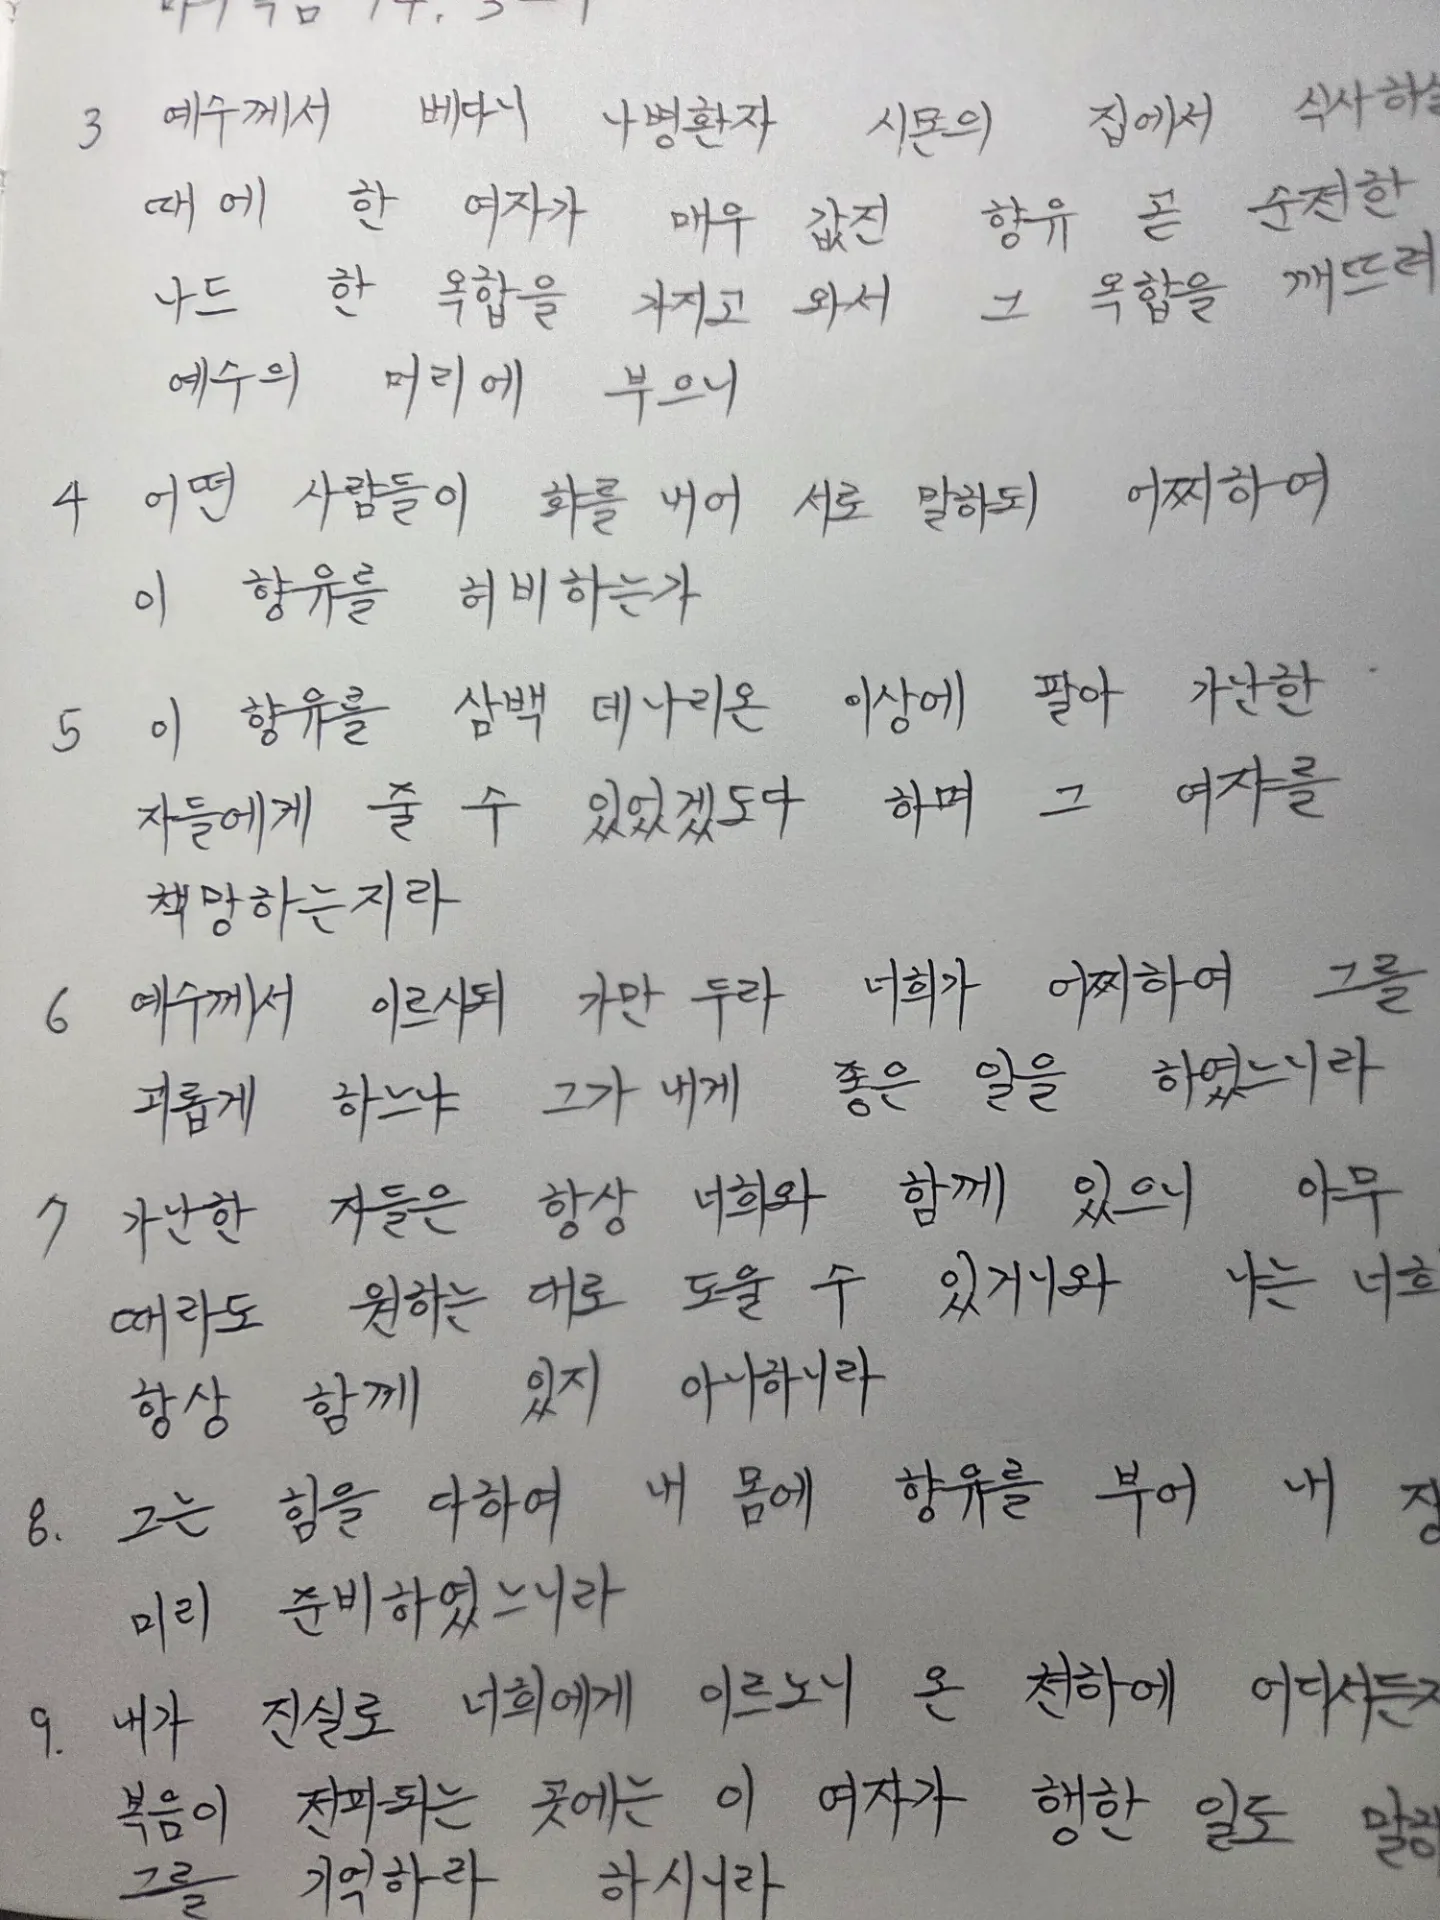 3 예수께서 베다니 나병환자 시몬의 집에서 식사하실
때에 한 여자가 매우 값진 향유 곧 순전한
나드 한 옥합을 가지고 와서 그 옥합을 깨뜨려
예수의 머리에 부으니
4 어떤 사람들이 화를 내어 서로 말하되 어찌하여
이 향유를 허비하는가
5 이 향유를 삼백 데나리온 이상에 팔아 가난한
자들에게 줄 수 있었겠도다 하며 그 여자를
책망하는지라
6 예수께서 이르시되 가만 두라 너희가 어찌하여 그를
괴롭게 하느냐 그가 내게 좋은 일을 하였느니라
7 가난한 자들은 항상 너희와 함께 있으니 아무
때라도 원하는 대로 도울 수 있거니와 나는 너희
항상 함께 있지 아니하니라
8. 그는 힘을 다하여 내 몸에 향유를 부어 내
미리 준비하였느니라
9. 내가 진실로 너희에게 이르노니 온 천하에 어디서든지
복음이 전파되는 곳에는 이 여자가 행한 일도
그를 기억하라 하시니라